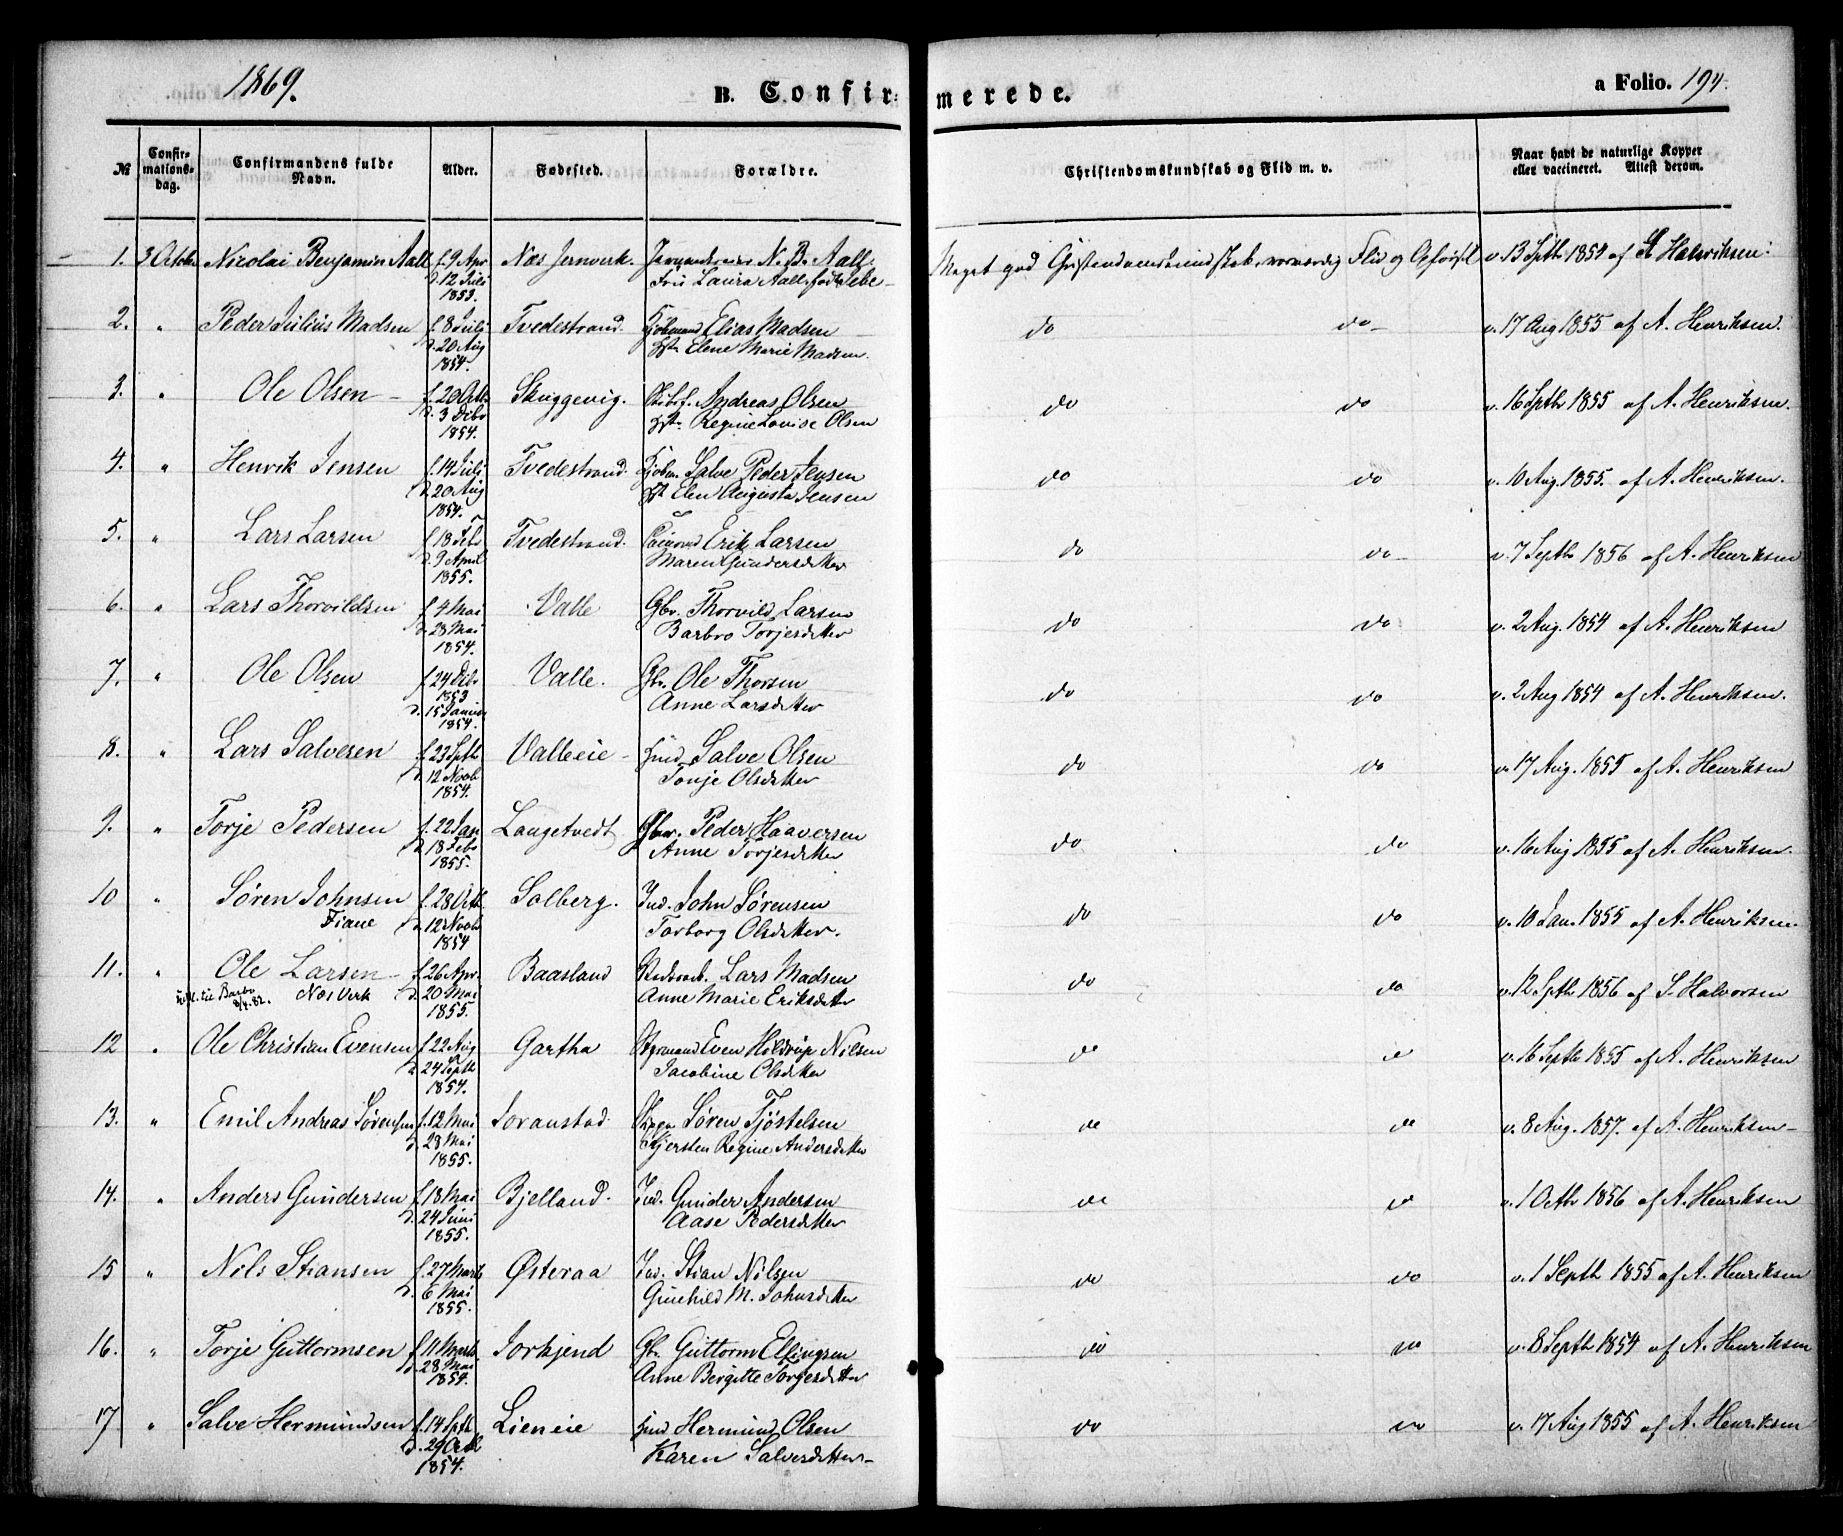 1869.
B. Confirmerede.
a Folio. 194.
№
Confirmationsdag.
Confirmandens fulde Navn.
Alder.
Fødested.
Forældre.
Christendomskundskab og Flid m. v.
Naar havt de naturlige Kopper eller vaccineret. Attest derom.
1. 3 Octobr Nicolai Benjamin Aall f. 9 Apr Næs Jernverk. N. B. Aall Meget god Cristendomskundskab, Flid og v. 13 Septb 1854 af Halvorsen
d. 12 Juli Laura Aall født
1853.
2. " Peder Julius Madsen f. 8 Juli Tvedestrand. Kjøbmand Elias Madsen do do v. 17 Aug 1855 af A. Henriksen.
d. 20 Aug Hst. Elene Marie Madsen.
1854.
3. " Ole Olsen f. 20 Octb Skuggevig. Skibsf. Andreas Olsen do do v. 16 Septb 1855 af A. Henriksen.
d. 3 Debr Hst. Regine Lovise Olsen
1854.
4. " Henrik Jensen f. 14 Juli Tvedestrand. Kjøbm. Salve Peder Jensen do do v. 10 Aug. 1855. af A. Henriksen.
d. 20 Aug Hst Elen Augusta Jensen
1854.
5. " Lars Larsen f. 18 Febr Tvedestrand. Erik Larsen do do v. 7 Septb 1856 af A. Henriksen
d. 9 April Maren Gundersdatter
1855.
6. " Lars Thorvildsen f. 4 Mai Valle Gbr. Thorvild Larsen do do v. 2 Aug. 1854 af A. Henriksen
d. 28 Mai Barbro Torjersdatter
1854.
7. " Ole Olsen f. 24 Debr Valle. Gbr. Ole Thorsen do do v. 2 Aug 1854 af A. Henriksen.
1853 Anne Larsdatter
d. 15 Januar
1854.
8. " Lars Salvesen f. 23 Septb Valleeie Hmd Salve Olsen do do v. 17 Aug. 1855 af A. Henriksen
d. 12 Novb Tonje Olsdatter
1854.
9. " Torje Pedersen f. 22 Jan Laugetvedt Gbr. Peder Haaversen do do v. 16 Aug 1855 af A. Henriksen.
d. 18 Febr Anne Torjesdatter
1855.
10 " Søren Johnsen f. 28 Octb. Solberg. Ind. John Sørensen do do v. 10 Jan. 1855 af A. Henriksen.
Fiane d. 12 Novbr Torborg Olsdatter.
1854
11. " Ole Larsen f. 26 Apr. Baasland Lars Madsen do do v. 12 Septb 1856 af S. Halvorsen
til Barbo 8/4. 82. Næs Verk d. 20 Mai Anne Marie Eriksdatter
1855.
12 " Ole Christian Evensen f. 22 Aug Gartha Styrmand Even Holdrup Nilsen do do v. 16 Septb 1855 af A. Henriksen
d. 24 Septb Jacobine Olsdatter
1854.
13. " Emil Andreas Sørensen f. 12 Mai Soranstad. Søren Tjøstelsen do do v. 8 Aug. 1857. af A. Henriksen
d. 28 Mai Kjersten Regine Andersdatter
1855.
14. " Anders Gundersen f. 18 Mai Bjelland. Ind. Gunder Andersen do do v. 1 Octbr 1856 af A. Henriksen
d. 24 Juni Aase Pedersdatter
1855.
15 " Nils Stiansen f. 27 Marts Østeraa Ind. Stian Nilsen do do v. 1 Septb 1855 af A. Henriksen
d. 6 Mai Gunhild M. Johnsdatter
1855.
16. " Torje Guttormsen f. 11 Marts Jorkjend Gbr. Guttorm Ellingsen do do v. 8 Septb 1854 af A. Henriksen
d. 28 Mai Anne Birgitte Torjersdatter
1854.
17 " Salve Hermundsen f. 14 Septb Lieneie Hmd Hermund Olsen do do v. 17 Aug 1855 af A. Henriksen
d. 29 Octb Karen Salvesdatter
1854.